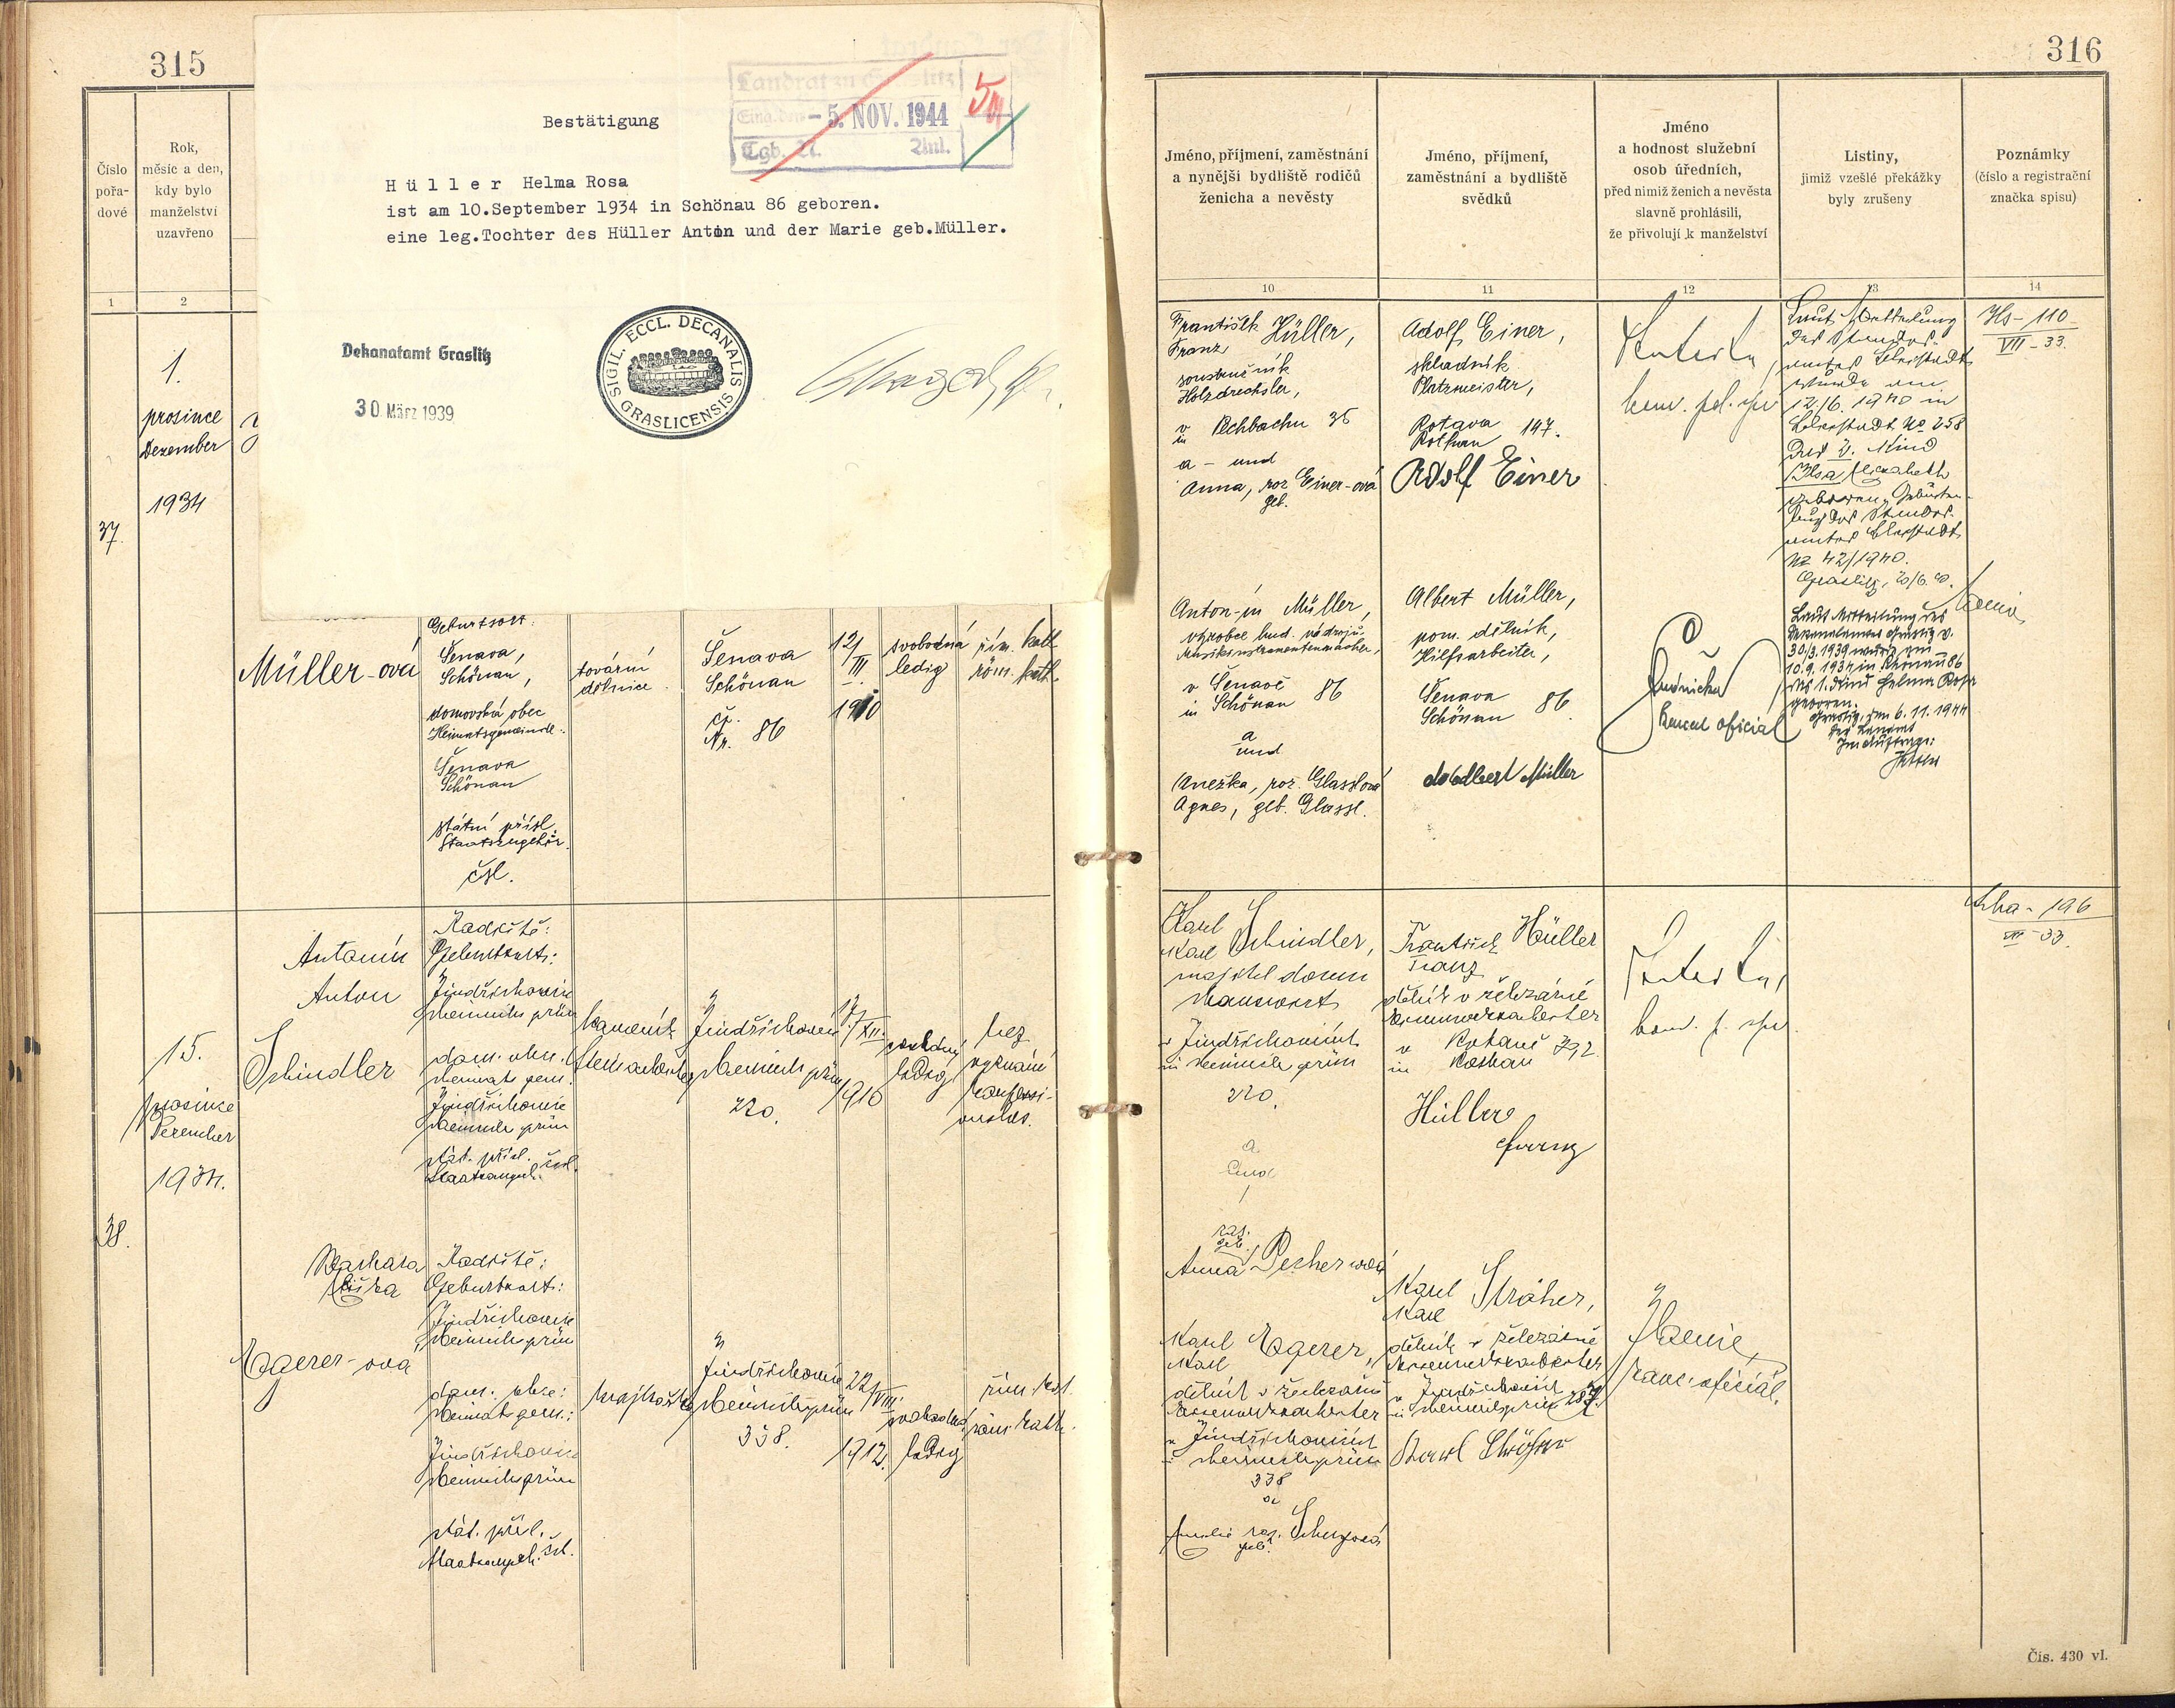 315
Číslo
pořa-
dové
Rok,
měsíc a den,
kdy bylo
manželství
uzavřeno
1
2
Landrat zu
Eing. den - 5. NOV. 1944
Tgb. Anl.
Bestätigung
Hüller Helma Rosa
ist am 10.September 1934 in Schönau 86 geboren.
eine leg.Tochter des Hüller Anton und der Marie geb.Müller.
Dekanatamt Graslitz
30. März 1939
SIGIL. ECCL. DECANALIS GRASLICENSIS
1.
prosince
Dezember
1934
37.
Müller-ová
Geburtsort:
Šenava,
Schönau,
domovská obec
Heimatsgemeinde:
Šenava
Schönau
státní přísl.
Staatszugehör.
čsl.
tovární
dělnice
Šenava
Schönau
čp.
Nr. 86
12/
III.
1910
svobodná
ledig
řím. kath
röm. kath.
15.
prosince
Dezember
1934.
38.
Antonín
Anton
Schindler
Rodiště:
Geburtsort:
Jindřichovic
Heinrichsgrün
dom. obec
Heimatsgem.
Jindřichovice
Heinrichsgrün
stát. přísl. čsl.
Staatsangeh.
kameník
Steinarbeiter
Jindřichovic
Heinrichsgrün
220.
17/
XII.
1910
svobodný
ledig
bez
vyznání
konfessi-
onslos.
Barbara
Egerer-ová
Rodiště:
Geburtsort:
Jindřichovic
Heinrichsgrün
dom. obce:
Heimatsgem.:
Jindřichovic
Heinrichsgrün
stát. přísl.
Staatsangeh. čsl.
krajkářka
Jindřichovic
Heinrichsgrün
338.
22/
VIII.
1912.
svobodná
ledig
řím. kat.
röm. kath.
316
Jméno, příjmení, zaměstnání
a nynější bydliště rodičů
ženicha a nevěsty
Jméno, příjmení,
zaměstnání a bydliště
svědků
Jméno
a hodnost služební
osob úředních,
před nimiž ženich a nevěsta
slavně prohlásili,
že přivolují k manželství
Listiny,
jimiž vzešlé překážky
byly zrušeny
Poznámky
(číslo a registrační
značka spisu)
10
11
12
13
14
František Hüller,
Franz
soustružník
Holzdrechsler,
v
in Pechbachu 35
a - und
Anna, roz. Einer-ová
geb.
Adolf Einer,
skladník
Platzmeister,
Rotava
Rothau 147.
Adolf Einer
Laut Mitteilung
des Standes-
amtes
wurde am
12/6. 1940 in
No 258
das 2. Kind
Ilsa Elisabeth
geboren, Geburten-
buch des Standes-
amtes
No 42/1940.
Graslitz, 20/6. 40.
Hs - 110
VII - 33.
Anton-ín Müller,
výrobce hud. nástrojů.
Musikinstrumentenmacher,
v Šenavě
in Schönau 86
a
und
Anežka, roz. Glasslová
Agnes, geb. Glassl.
Albert Müller,
pom. dělník,
Hilfsarbeiter,
Šenava
Schönau 86.
Adalbert Müller
kancel. oficiál
Laut Mitteilung des
Dekanalamtes Graslitz v.
30/3.1939 wurde am
10.9.1934 in Schönau 86
das 1. Kind Helma Rosa
geboren.
Graslitz, den 6.11.1944
Der Landrat
Im Auftrage:
Karel
Karl Schindler,
majitel domu
Hausbesitz.
v Jindřichovicích
in Heinrichsgrün
220.
a
und
roz.
geb.
Anna Pecherová
František Hüller
Franz
dělník v železárně
Eisenwerksarbeiter
v Rotavě
in Rothau 392
Hüller
Franz
196
III - 33.
Karel Egerer,
Karl
dělník v železárně
Eisenwerksarbeiter
v Jindřichovicích
in Heinrichsgrün
338
a
Amalie roz. Schugová
geb.
Karel Ströher,
Karl
dělník v železárně
Eisenwerksarbeiter
v Jindřichovicích
in Heinrichsgrün 287.
Karl Ströher
kanc. oficiál.
Čís. 430 vl.